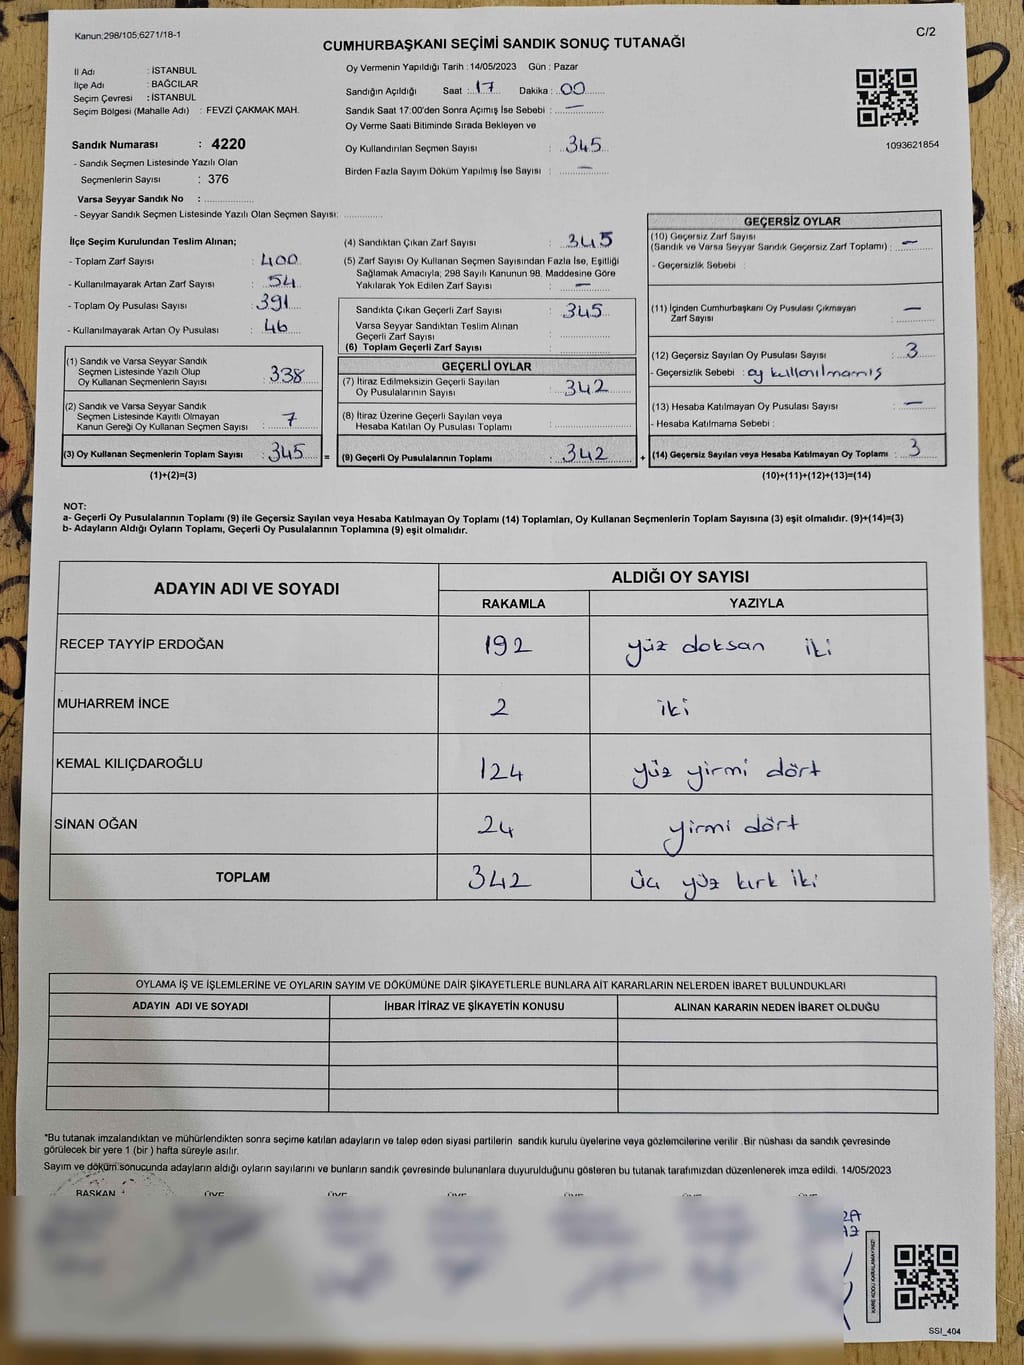 Kanun:298/105;6271/18-1
C/2
CUMHURBAŞKANI SEÇİMİ SANDIK SONUÇ TUTANAĞI
İl Adı : İSTANBUL
İlçe Adı : BAĞCILAR
Seçim Çevresi : İSTANBUL
Seçim Bölgesi (Mahalle Adı) : FEVZİ ÇAKMAK MAH.
Sandık Numarası : 4220
- Sandık Seçmen Listesinde Yazılı Olan
Seçmenlerin Sayısı : 376
Varsa Seyyar Sandık No : ..................
- Seyyar Sandık Seçmen Listesinde Yazılı Olan Seçmen Sayısı: .............
Oy Vermenin Yapıldığı Tarih : 14/05/2023 Gün : Pazar
Sandığın Açıldığı Saat : 17 Dakika : 00
Sandık Saat 17:00'den Sonra Açımış İse Sebebi : —
Oy Verme Saati Bitiminde Sırada Bekleyen ve
Oy Kullandırılan Seçmen Sayısı : 345
Birden Fazla Sayım Döküm Yapılmış İse Sayısı : —
1093621854
İlçe Seçim Kurulundan Teslim Alınan;
- Toplam Zarf Sayısı : 400
- Kullanılmayarak Artan Zarf Sayısı : 54
- Toplam Oy Pusulası Sayısı : 391
- Kullanılmayarak Artan Oy Pusulası : 46
(1) Sandık ve Varsa Seyyar Sandık
Seçmen Listesinde Yazılı Olup
Oy Kullanan Seçmenlerin Sayısı : 338
(2) Sandık ve Varsa Seyyar Sandık
Seçmen Listesinde Kayıtlı Olmayan
Kanun Gereği Oy Kullanan Seçmen Sayısı : 7
(3) Oy Kullanan Seçmenlerin Toplam Sayısı : 345 =
(1)+(2)=(3)
(4) Sandıktan Çıkan Zarf Sayısı : 345
(5) Zarf Sayısı Oy Kullanan Seçmen Sayısından Fazla İse, Eşitliği
Sağlamak Amacıyla; 298 Sayılı Kanunun 98. Maddesine Göre
Yakılarak Yok Edilen Zarf Sayısı : —
Sandıkta Çıkan Geçerli Zarf Sayısı : 345
Varsa Seyyar Sandıktan Teslim Alınan
Geçerli Zarf Sayısı : ..................
(6) Toplam Geçerli Zarf Sayısı : ..................
GEÇERLİ OYLAR
(7) İtiraz Edilmeksizin Geçerli Sayılan
Oy Pusulalarının Sayısı : 342
(8) İtiraz Üzerine Geçerli Sayılan veya
Hesaba Katılan Oy Pusulası Toplamı : ..................
(9) Geçerli Oy Pusulalarının Toplamı : 342 +
GEÇERSİZ OYLAR
(10) Geçersiz Zarf Sayısı
(Sandık ve Varsa Seyyar Sandık Geçersiz Zarf Toplamı) : —
- Geçersizlik Sebebi :
(11) İçinden Cumhurbaşkanı Oy Pusulası Çıkmayan
Zarf Sayısı : —
(12) Geçersiz Sayılan Oy Pusulası Sayısı : 3
- Geçersizlik Sebebi : oy kullanılmamış
(13) Hesaba Katılmayan Oy Pusulası Sayısı : —
- Hesaba Katılmama Sebebi :
(14) Geçersiz Sayılan veya Hesaba Katılmayan Oy Toplamı : 3
(10)+(11)+(12)+(13)=(14)
NOT:
a- Geçerli Oy Pusulalarının Toplamı (9) ile Geçersiz Sayılan veya Hesaba Katılmayan Oy Toplamı (14) Toplamları, Oy Kullanan Seçmenlerin Toplam Sayısına (3) eşit olmalıdır. (9)+(14)=(3)
b- Adayların Aldığı Oyların Toplamı, Geçerli Oy Pusulalarının Toplamına (9) eşit olmalıdır.
ADAYIN ADI VE SOYADI ALDIĞI OY SAYISI
RAKAMLA YAZIYLA
RECEP TAYYİP ERDOĞAN 192 yüz doksan iki
MUHARREM İNCE 2 iki
KEMAL KILIÇDAROĞLU 124 yüz yirmi dört
SİNAN OĞAN 24 yirmi dört
TOPLAM 342 üç yüz kırk iki
OYLAMA İŞ VE İŞLEMLERİNE VE OYLARIN SAYIM VE DÖKÜMÜNE DAİR ŞİKAYETLERLE BUNLARA AİT KARARLARIN NELERDEN İBARET BULUNDUKLARI
ADAYIN ADI VE SOYADI İHBAR İTİRAZ VE ŞİKAYETİN KONUSU ALINAN KARARIN NEDEN İBARET OLDUĞU
*Bu tutanak imzalandıktan ve mühürlendikten sonra seçime katılan adayların ve talep eden siyasi partilerin sandık kurulu üyelerine veya gözlemcilerine verilir .Bir nüshası da sandık çevresinde
görülecek bir yere 1 (bir ) hafta süreyle asılır.
Sayım ve döküm sonucunda adayların aldığı oyların sayılarını ve bunların sandık çevresinde bulunanlara duyurulduğunu gösteren bu tutanak tarafımızdan düzenlenerek imza edildi. 14/05/2023
BAŞKAN ÜYE ÜYE ÜYE ÜYE ÜYE ÜYE
KARE KODU KARALAMAYINIZ!
SSI_404